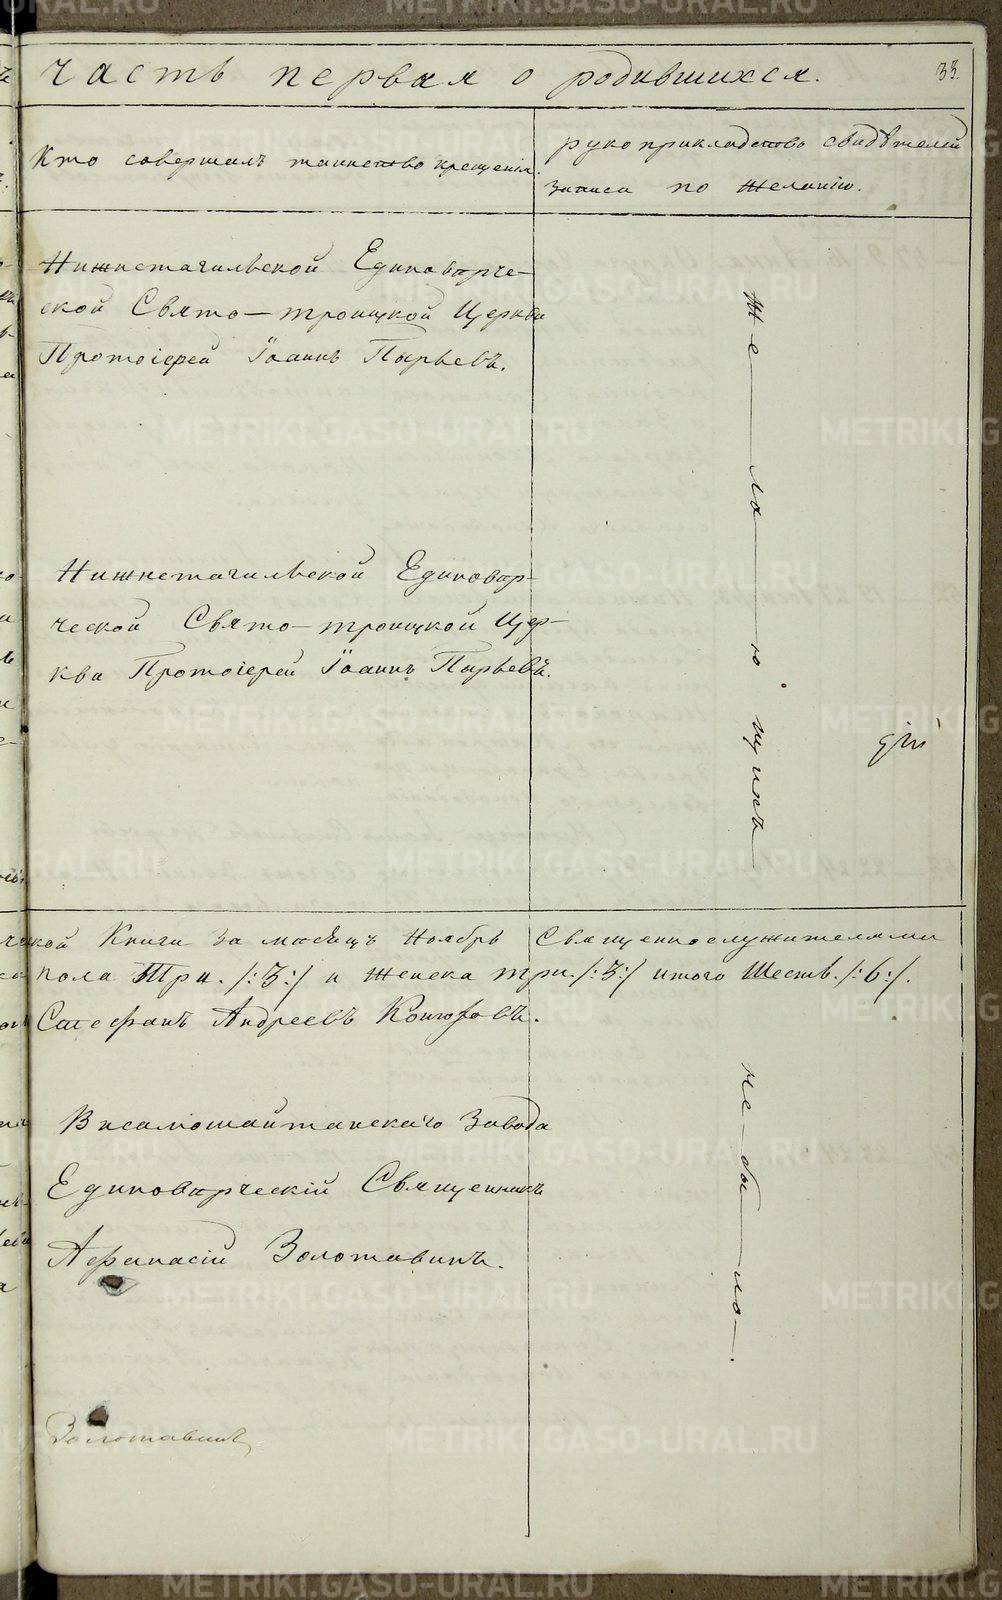 Часть первая о родившихся.
33.
Кто совершалъ таинство крещенія.
рукоприкладство свидѣтелей
записи по желанію.
Нижнетагильской Единоверче-
ской Свято-троицкой Церкви
Протоіерей Іоаннъ Пырьевъ.
Нижнетагильской Единовер-
ческой Свято-троицкой Цер-
кви Протоіерей Іоаннъ Пырьевъ.
Же ла ю щихъ
не бы ло.
ческой Книги за месяцъ Ноябрь Священнослужителями
пола Три. /:3:/ и Женска три. /:3:/ итого Шесть. /:6:/.
Стефанъ Андреевъ
Висимошайтанскаго Завода
Единоверческій Священникъ
Афанасій Золотавинъ.
Золотавинъ
METRIKI.GASO-URAL.RU